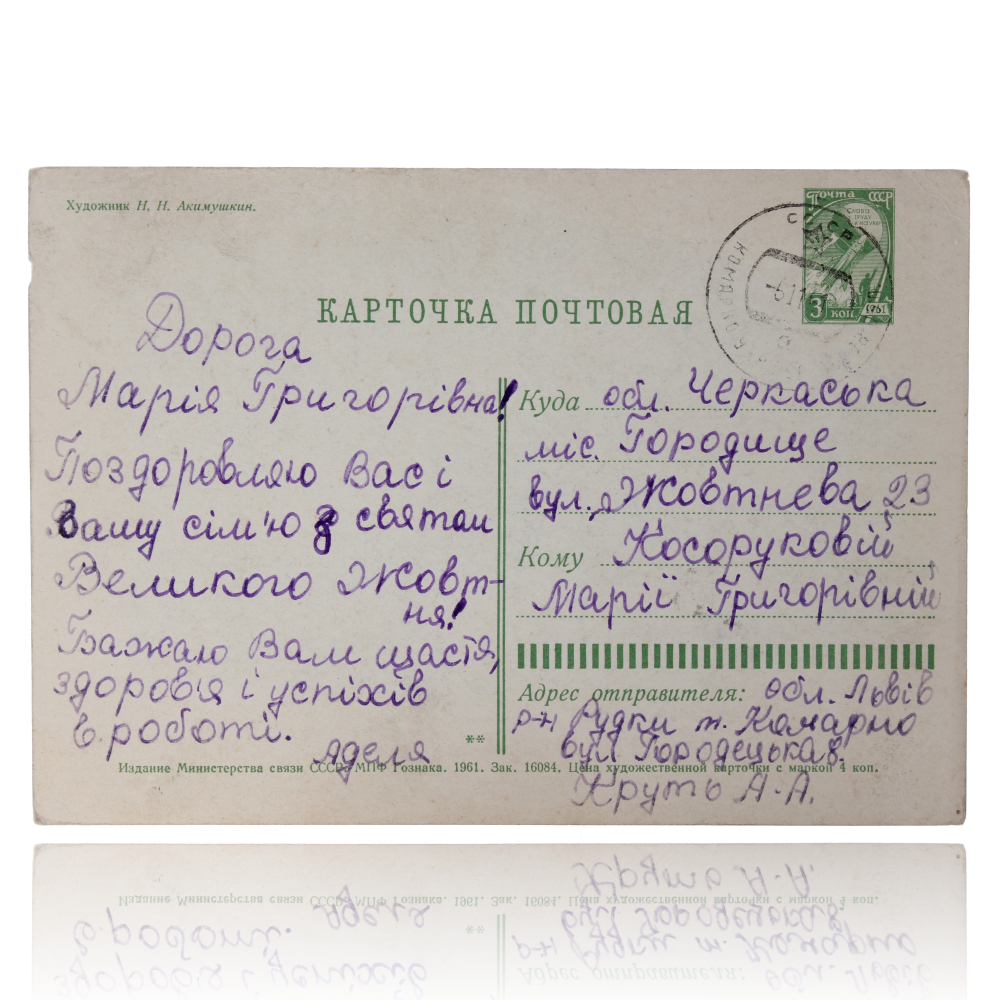 Художник Н. Н. Акимушкин.
Почта СССР
СЛАВА
ТРУДУ
И НАУКЕ
3 коп.
1961
СССР
КАРТОЧКА ПОЧТОВАЯ
Дорога
Марія Григорівна!
Поздоровляю Вас і
Вашу сім'ю з святам
Великого Жовт-
ня!
Бажаю Вам щастя,
здоров'я і успіхів
в роботі.
Аделя
Куда обл. Черкаська
міс. Городище
вул. Жовтнева 23
Кому Косоруковій
Марії Григорівній
Адрес отправителя: обл. Львів
р-н Рудки м. Комарно
вул Городецька 8.
Круть А-А.
**
Издание Министерства связи СССР. МПФ Гознака. 1961. Зак. 16084. Цена художественной карточки с маркой 4 коп.